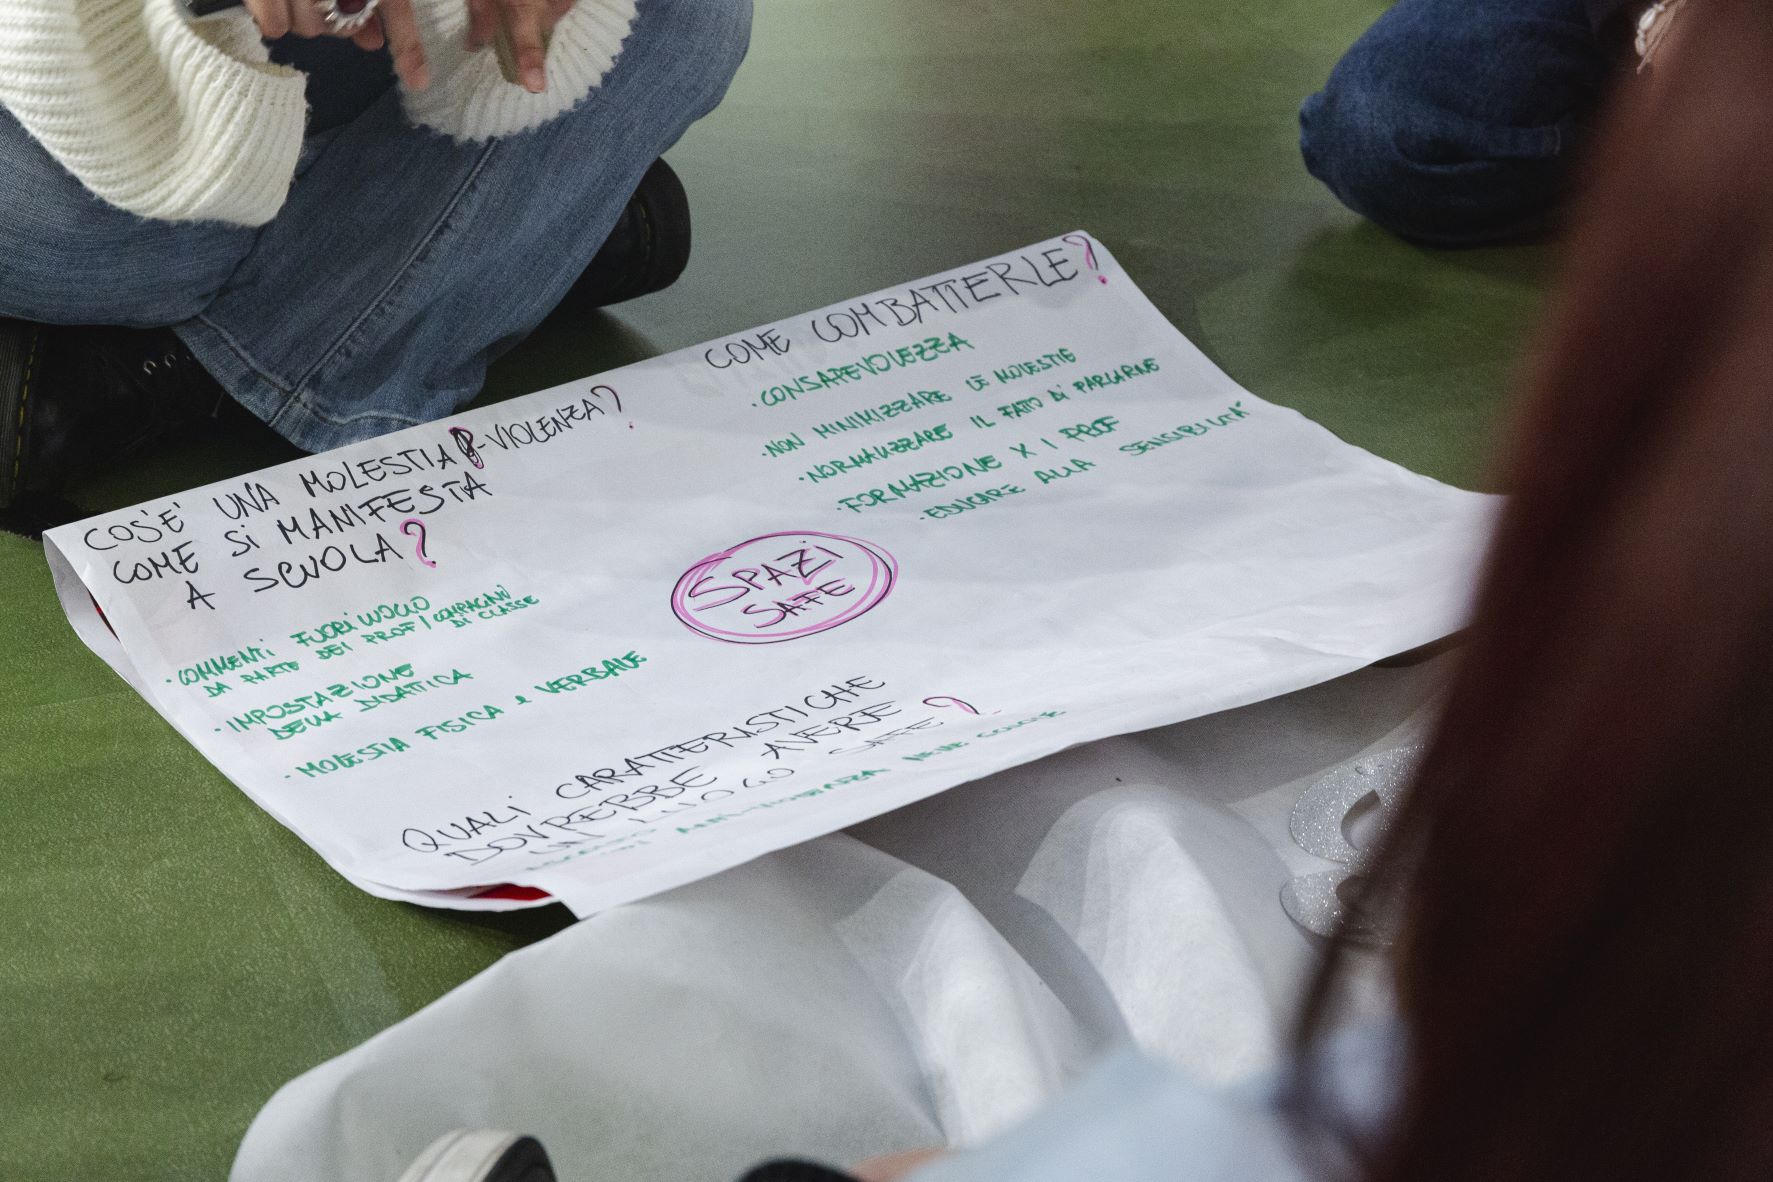 COS'E' UNA MOLESTIA-VIOLENZA?
COME Si MANIFESTA
A SCUOLA?
·COMMENTi FUORi LUOGO
DA PARTE DEI PROF/COMPAGNI
DI CLASSE
·IMPOSTAZIONE
DELLA DIDATTICA
·MOLESTIA FISICA e VERBALE
COME COMBATTERLE?
·CONSAPEVOLEZZA
·NON MINIMIZZARE LE MOLESTIE
·NORMALIZZARE IL FATTO Di PARLARNE
·FORMAZIONE X I PROF
·EDUCARE ALLA SENSIBILITA'
SPAZi
SAFE
QUALi CARATTERISTICHE
DOVREBBE AVERE
UN LUOGO SAFE?